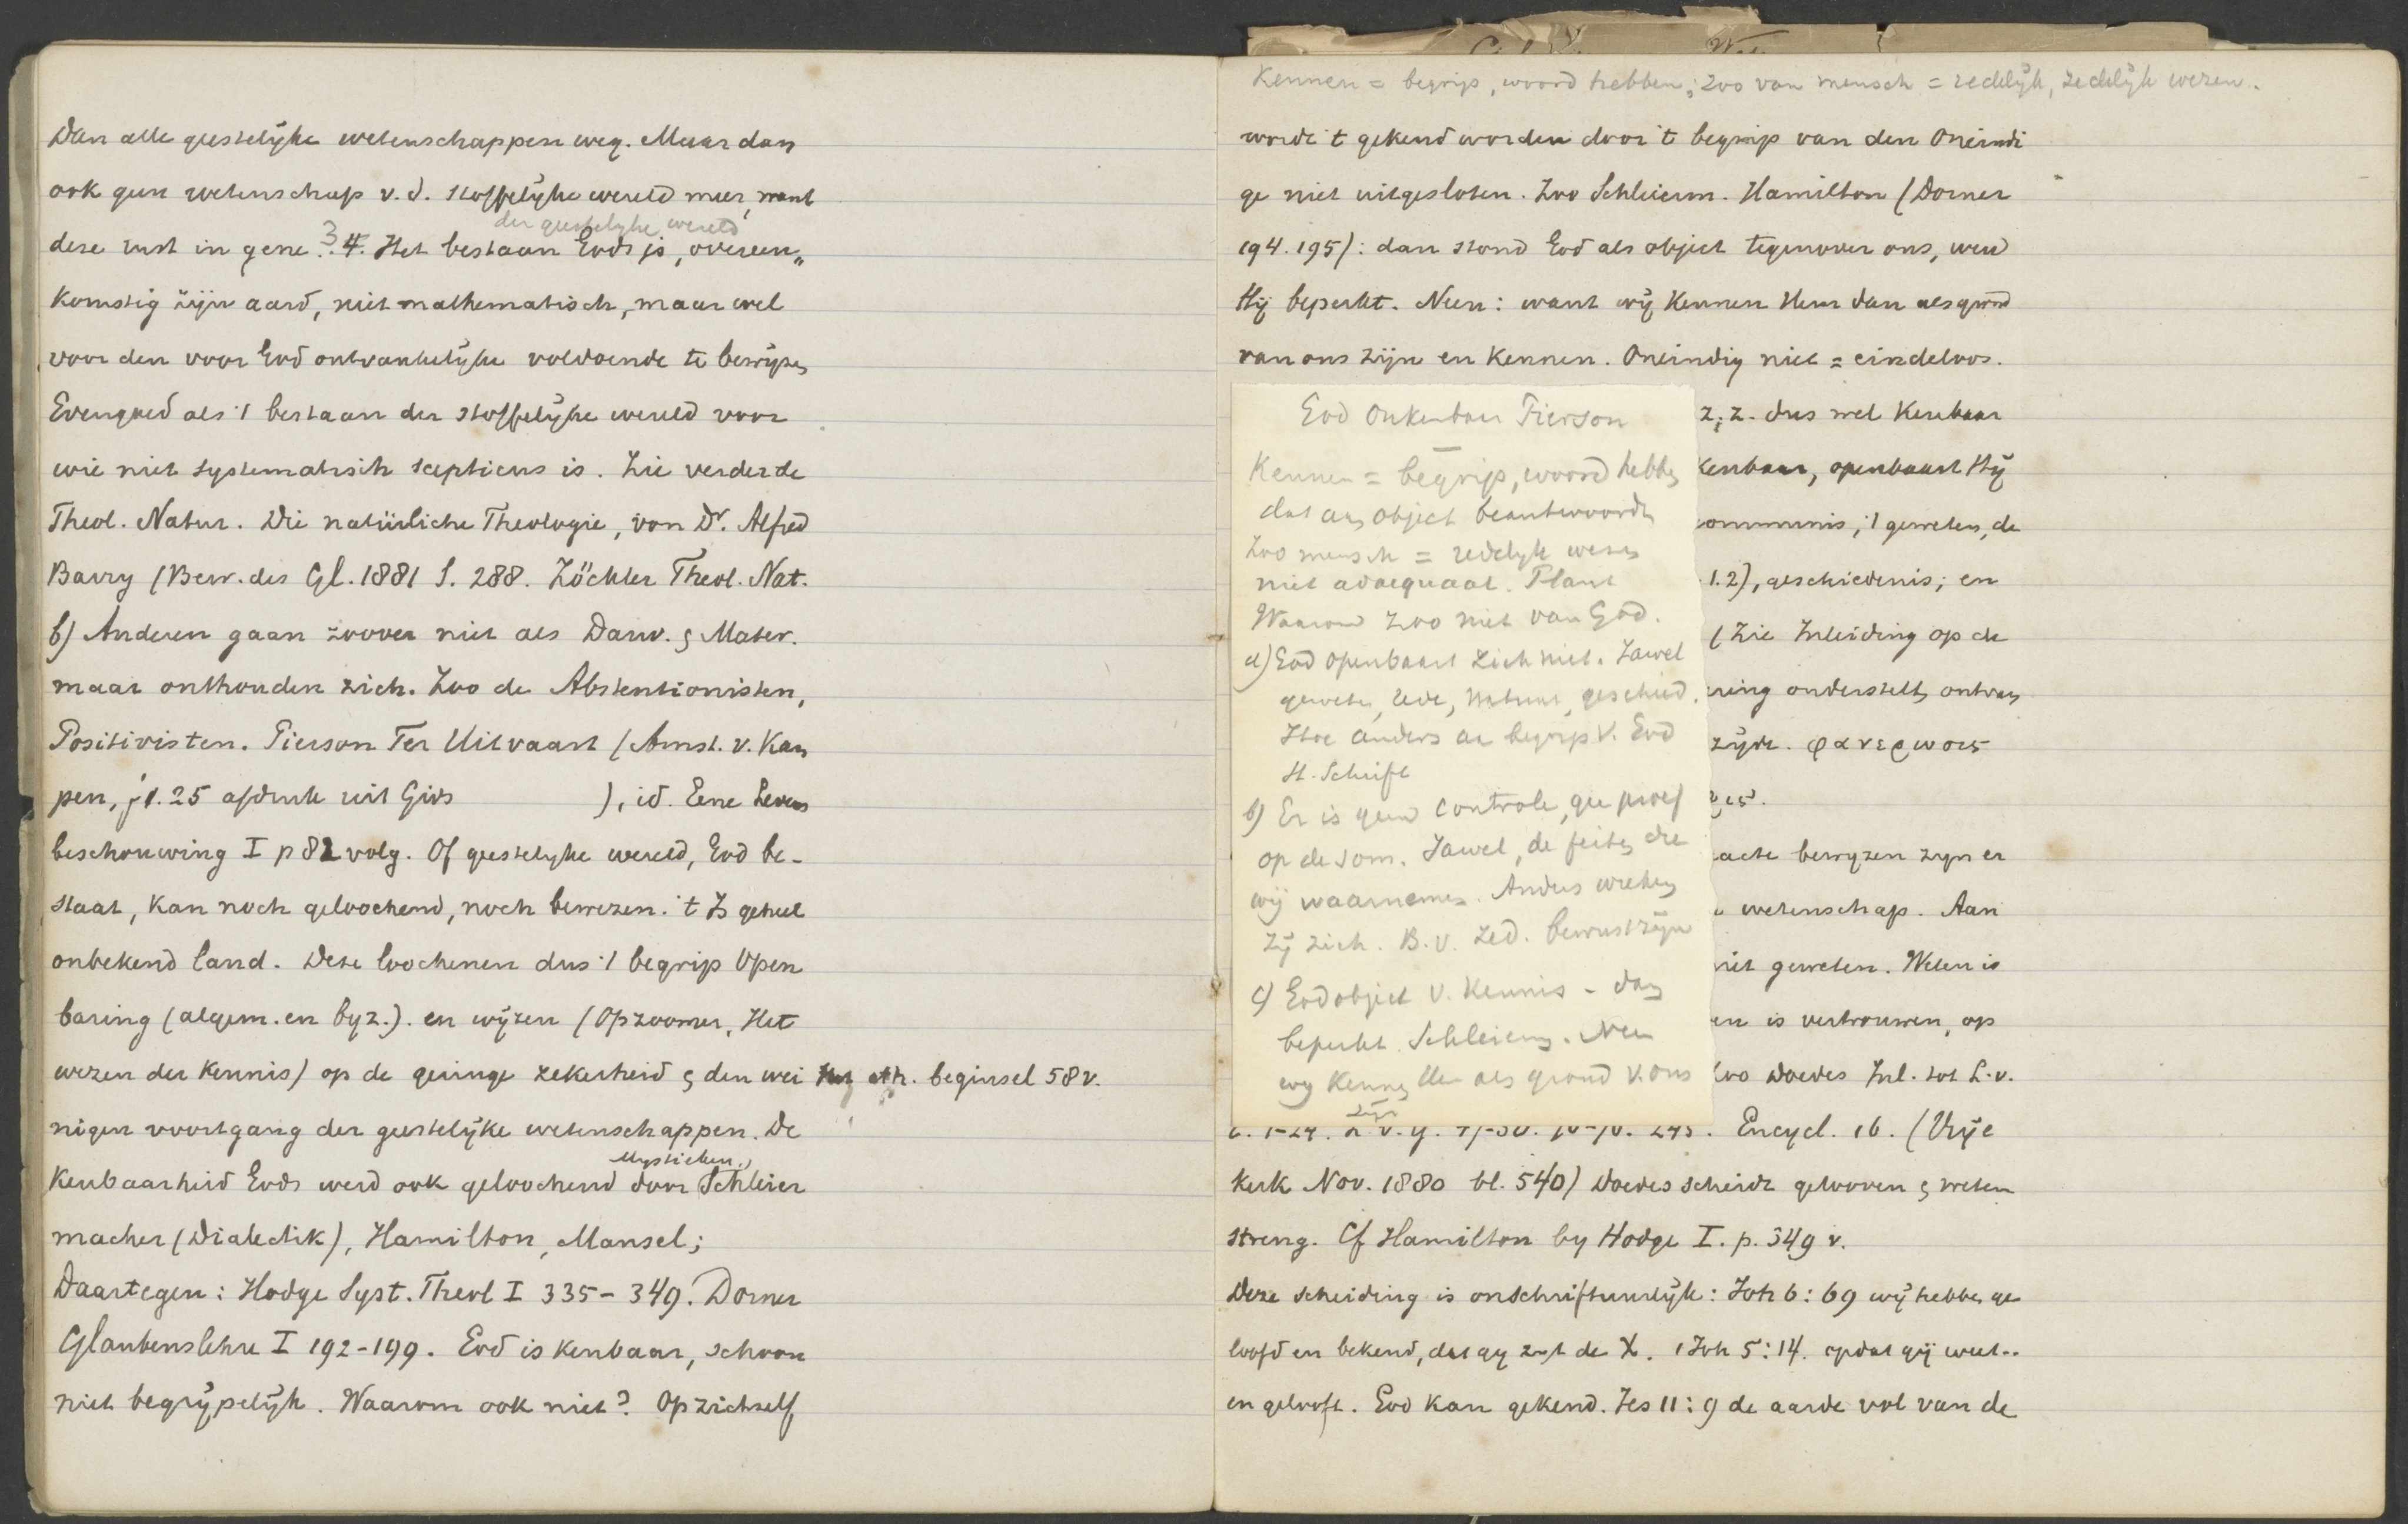 Dan alle geestelijke wetenschappen weg. Maar dan
ook geen wetenschap v.d. stoffelijke wereld meer, want
der geestelijke wereld
deze rust in gene. 3 4. Het bestaan Gods is, overeen„
komstig zijn aard, niet mathematisch, maar wel
voor den voor God ontvankelijke voldoende te bewijzen
Evengoed als 't bestaan der stoffelijke wereld voor
wie niet systematisch scepticus is. Zie verder de
Theol. Natur. Die natürliche Theologie, von Dr. Alfred
Barry (Bew. des Gl. 1881 S. 288. Zöckler Theol. Nat.
b) Anderen gaan zoover niet als Darw. & Mater.
maar onthouden zich. Zoo de Abstentionisten,
Positivisten. Pierson Ter Uitvaart (Amst. v. Kam
pen, f 1.25 afdruk uit Gids ), id. Eene Levens
beschouwing I p 82 volg. Of geestelyke wereld, God be-
staat, kan noch geloochend, noch bewezen. 't Is geheel
onbekend land. Deze loochenen dus 't begrip Open
baring (algem. en byz.). en wijzen (Opzoomer, Het
wezen der Kennis) op de geringe zekerheid & den wei eth. beginsel 58 v.
nigen voortgang der geestelijke wetenschappen. De
Mystieken,
Kenbaarheid Gods werd ook geloochend door Schleier
macher (Dialectik), Hamilton, Mansel;
Daartegen: Hodge Syst. Theol I 335-349. Dorner
Glaubenslehre I 192-199. God is kenbaar, schoon
niet begrijpelijk. Waarom ook niet? Op zichzelf
Kennen = begrip, woord hebben; zoo van mensch = redelijk, zedelijk wezen.
wordt 't gekend worden door 't begrip van den Oneindi
ge niet uitgesloten. Zoo Schleierm. Hamilton (Dorner
194. 195): dan stond God als object tegenover ons, werd
Hij beperkt. Neen: want wij kennen Hem dan als grond
van ons zijn en kennen. Oneindig niet = eindeloos.
God onkenbaar Pierson
Kennen = begrip, woord hebben
dat aan object beantwoordt
Zoo mensch = redelyk wezen
niet adaequaat. Plant
Waarom zoo niet van God.
a) God openbaart zich niet. Jawel
geweten, rede, natuur, geschied.
Hoe anders aan begrip v. God
H. Schrift
b) Er is geen controle, gee proef
op de som. Jawel, de feiten die
wij waarnemen. Anders wreken
zij zich. B.v. Zed. bewustzijn
c) God object v. kennis - dan
beperkt Schleierm. Neen
wy kennen Hem als grond v. ons
zijn
z. z. dus wel kenbaar
kenbaar, openbaart Hij
communis, 't geweten, de
1.2), geschiedenis; en
(Zie Inleiding op de
ring onderstelt, ontvan
zijde. φανερωσις
ιες.
acte bewyzen zyn er
wetenschap. Aan
niet geweten. Weten is
en is vertrouwen, op
Zoo Doedes Inl. tot L.v.
Encycl. 16. (Vrije
Kerk Nov. 1880 bl. 540) Doedes scheidt gelooven & weten
streng. Cf Hamilton by Hodge I. p. 349 v.
Deze scheiding is onschriftuurlijk: Joh 6:69 wij hebben ge
loofd en bekend, dat gy zyt de X. 1 Joh 5:14. opdat gij weet..
en gelooft. God kan gekend. Jes 11:9 de aarde vol van de